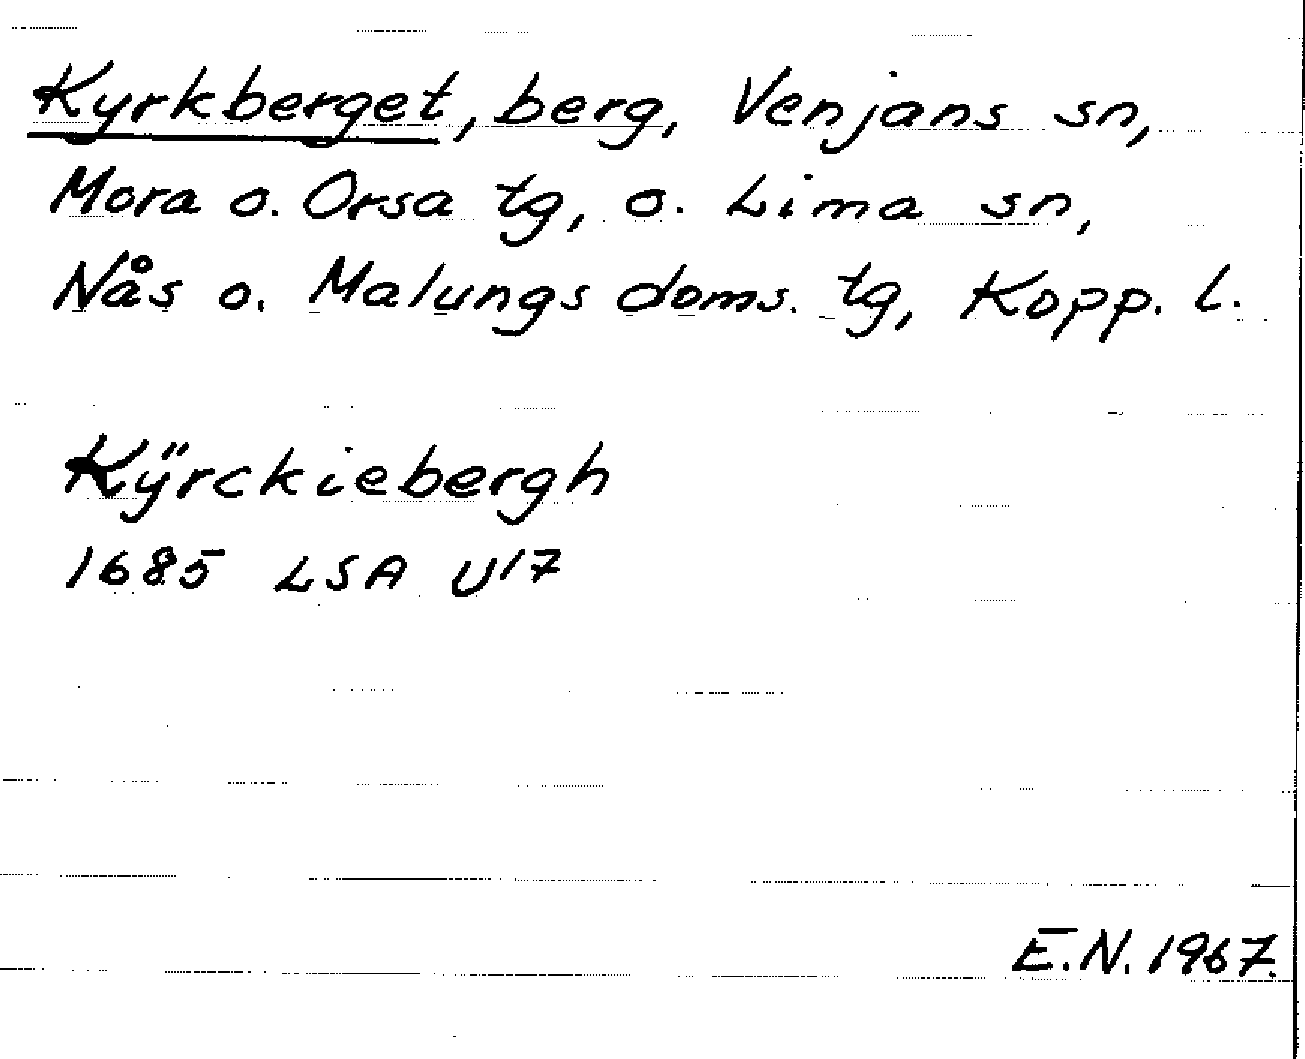 Kyrkberget, berg, Venjans sn,
Mora o. Orsa tg, o. Lima sn,
Nås o. Malungs doms. tg, Kopp. l.
Kÿrckiebergh
1685 LSA U17
E.N. 1967.